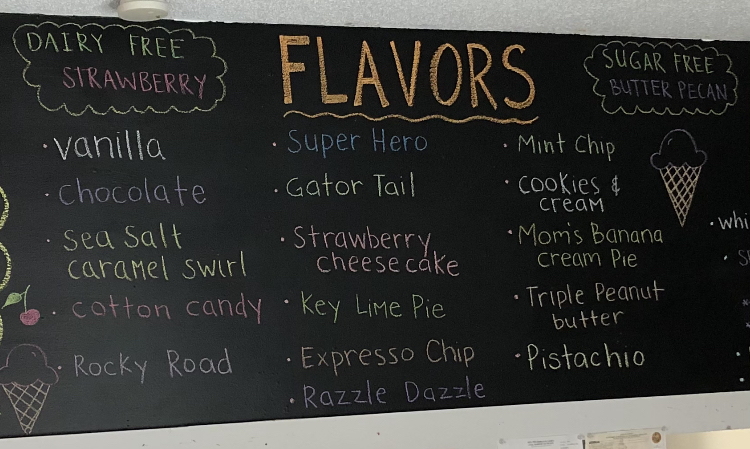 DAIRY FREE
STRAWBERRY
FLAVORS
SUGAR FREE
BUTTER PECAN
· vanilla
· chocolate
· sea salt
caramel swirl
· cotton candy
· Rocky Road
· Super Hero
· Gator Tail
· Strawberry
cheesecake
· Key Lime Pie
· Expresso Chip
· Razzle Dazzle
· Mint Chip
· cookies &
cream
· Mom's Banana
cream Pie
· Triple Peanut
butter
· Pistachio